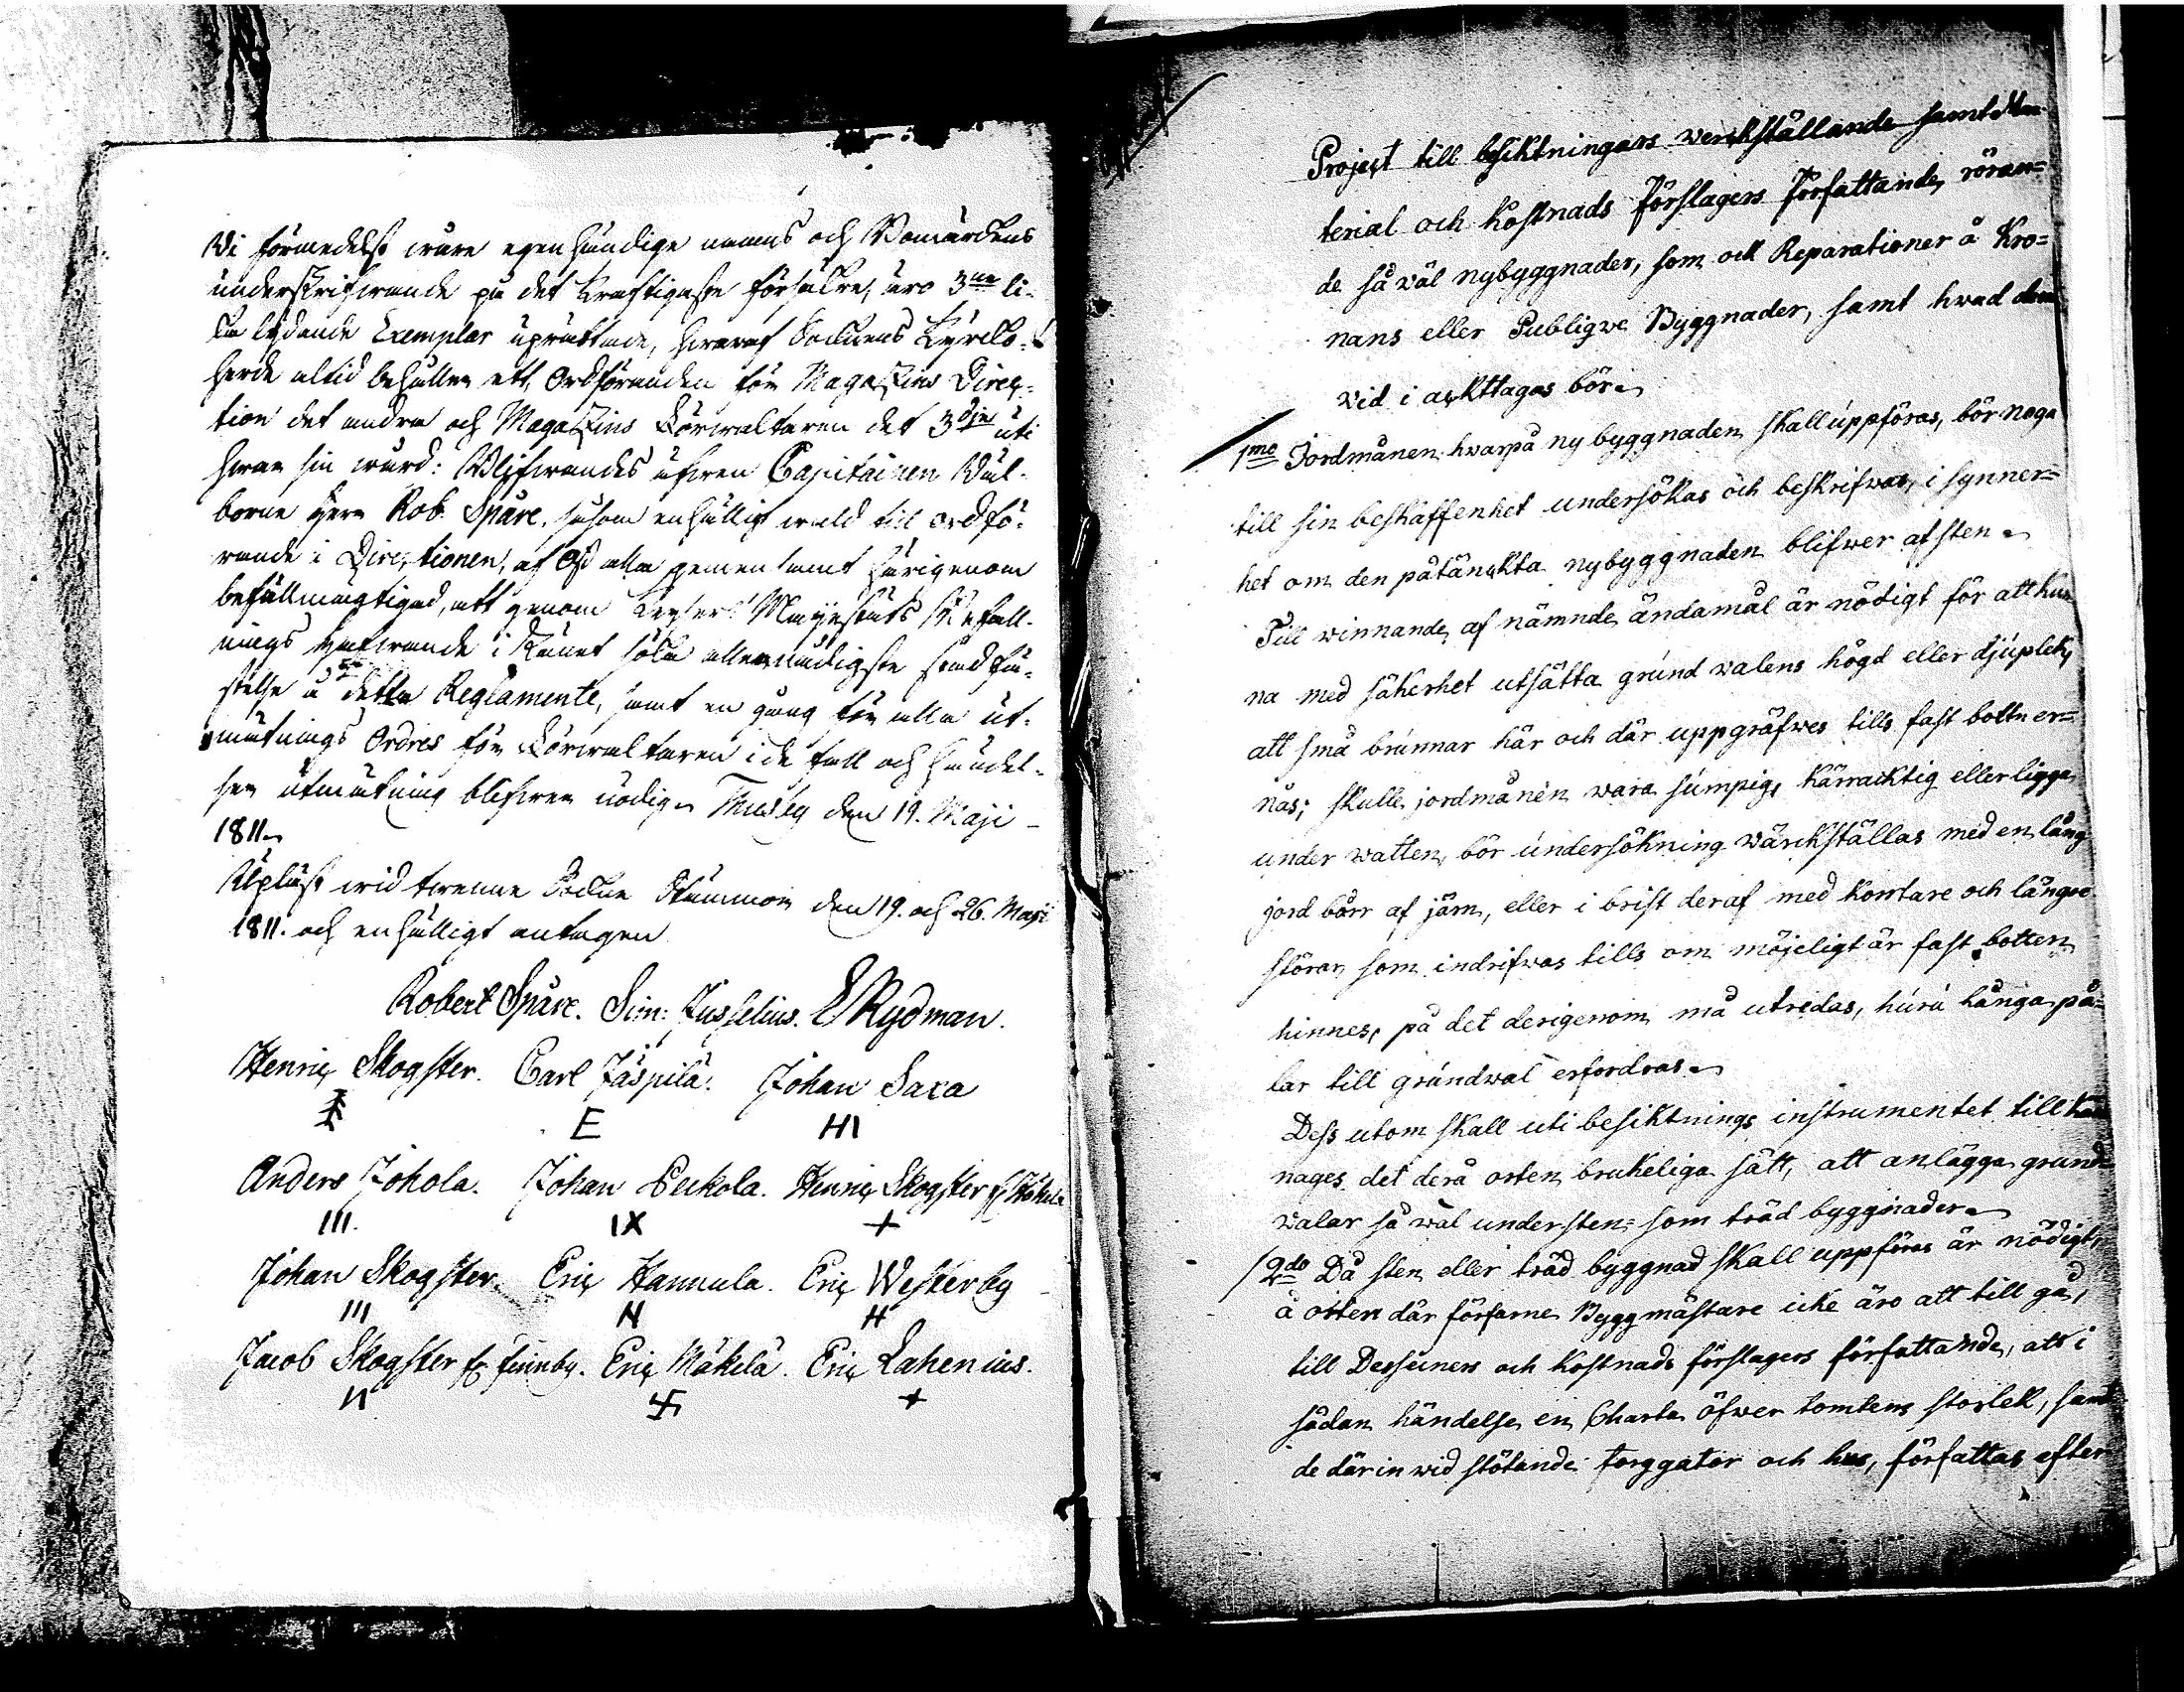 Wi förmedelst wåre egenhändige namns och Bomärckens
underskrifwande på det kraftigaste försäkre, äro 3ne li-
ka lydande Exemplar uprättade, hwaraf Socknens Kyrcko-
herde altid behåller ett, Ordföranden för Magazins Direc-
tion det andra och Magazins Förwaltaren det 3dje uti
hwar sin wård: Blifwandes äfwen Capitainen Wäl-
borne Herr Rob. Spåre, såsom enhälligt wald till ordfö-
rande i Directionen, af Oss alla gemensamt härigenom
befullmägtigad, att genom Keyserl. Mayestäts Befall-
nings hafwande i Länet söka allernådigste stadfä-
stelse å detta Reglamente, samt en gång för alla ut-
mätnings Ordres för Förwaltaren i de fall och händel-
ser utmätning blifwer nödig. Thusby den 19. Maji
1811.
Upläst wid twenne Sockne Stämmor den 19. och 26. Maji
1811. och enhälligt antagen
Robert Spåre. Sim: Jusselius. E Rydman.
Henric Skogster. Carl Jäspilä. Johan Saxa
E HI
Anders Johola. Johan Peckola. Henric Skogster
III. IX +
Johan Skogster. Eric Hannula. Eric Westerby
III N H
Jacob Skogster fr. finnby. Eric Mäkelä. Eric Lahenius.
И 卐 +
Project till besiktningars werckställande samt Ma-
terial och Kostnads Förslagers Författande, röran=
de så wäl nybyggnader, som ock Reparationer å Kro=
nans eller Publiqve Byggnader, samt hwad der
wid i acktagas bör.
1mo Jordmånen hwarpå ny byggnaden skall uppföras, bör noga
till sin beskaffenhet undersökas och beskrifwas, i synner=
het om den påtänckta nybyggnaden blifwer af sten.
Till winnande af nämnde ändamål är nödigt för att kun
na med säkerhet utsätta grund walens högd eller djuplek,
att små brunnar här och där uppgräfwes tills fast botten er=
nås; skulle jordmånen wara sumpig, kärracktig eller ligga
under watten, bör undersökning wärckställas med en lång
jord bårr af järn, eller i brist deraf med kortare och längre
störar som indrifwas tills om möjeligt är fast botten
hinnes, på det derigenom må utredas, huru långa på=
lar till grundwal erfordras.
Dess utom skall uti besiktnings instrumentet till kän
nages det derå orten brukeliga sätt, att anlägga grund
walar så wäl under sten= som träd byggnader.
2do Då sten eller träd byggnad skall uppföras är nödigt,
å orten där förfarne Byggmästare icke äro att till gå,
till Desseiners och Kostnads förslagers författande, att i
sådan händelse en Charta öfwer tomtens storlek, samt
de därin wid stötande torggator och hus, författas efter